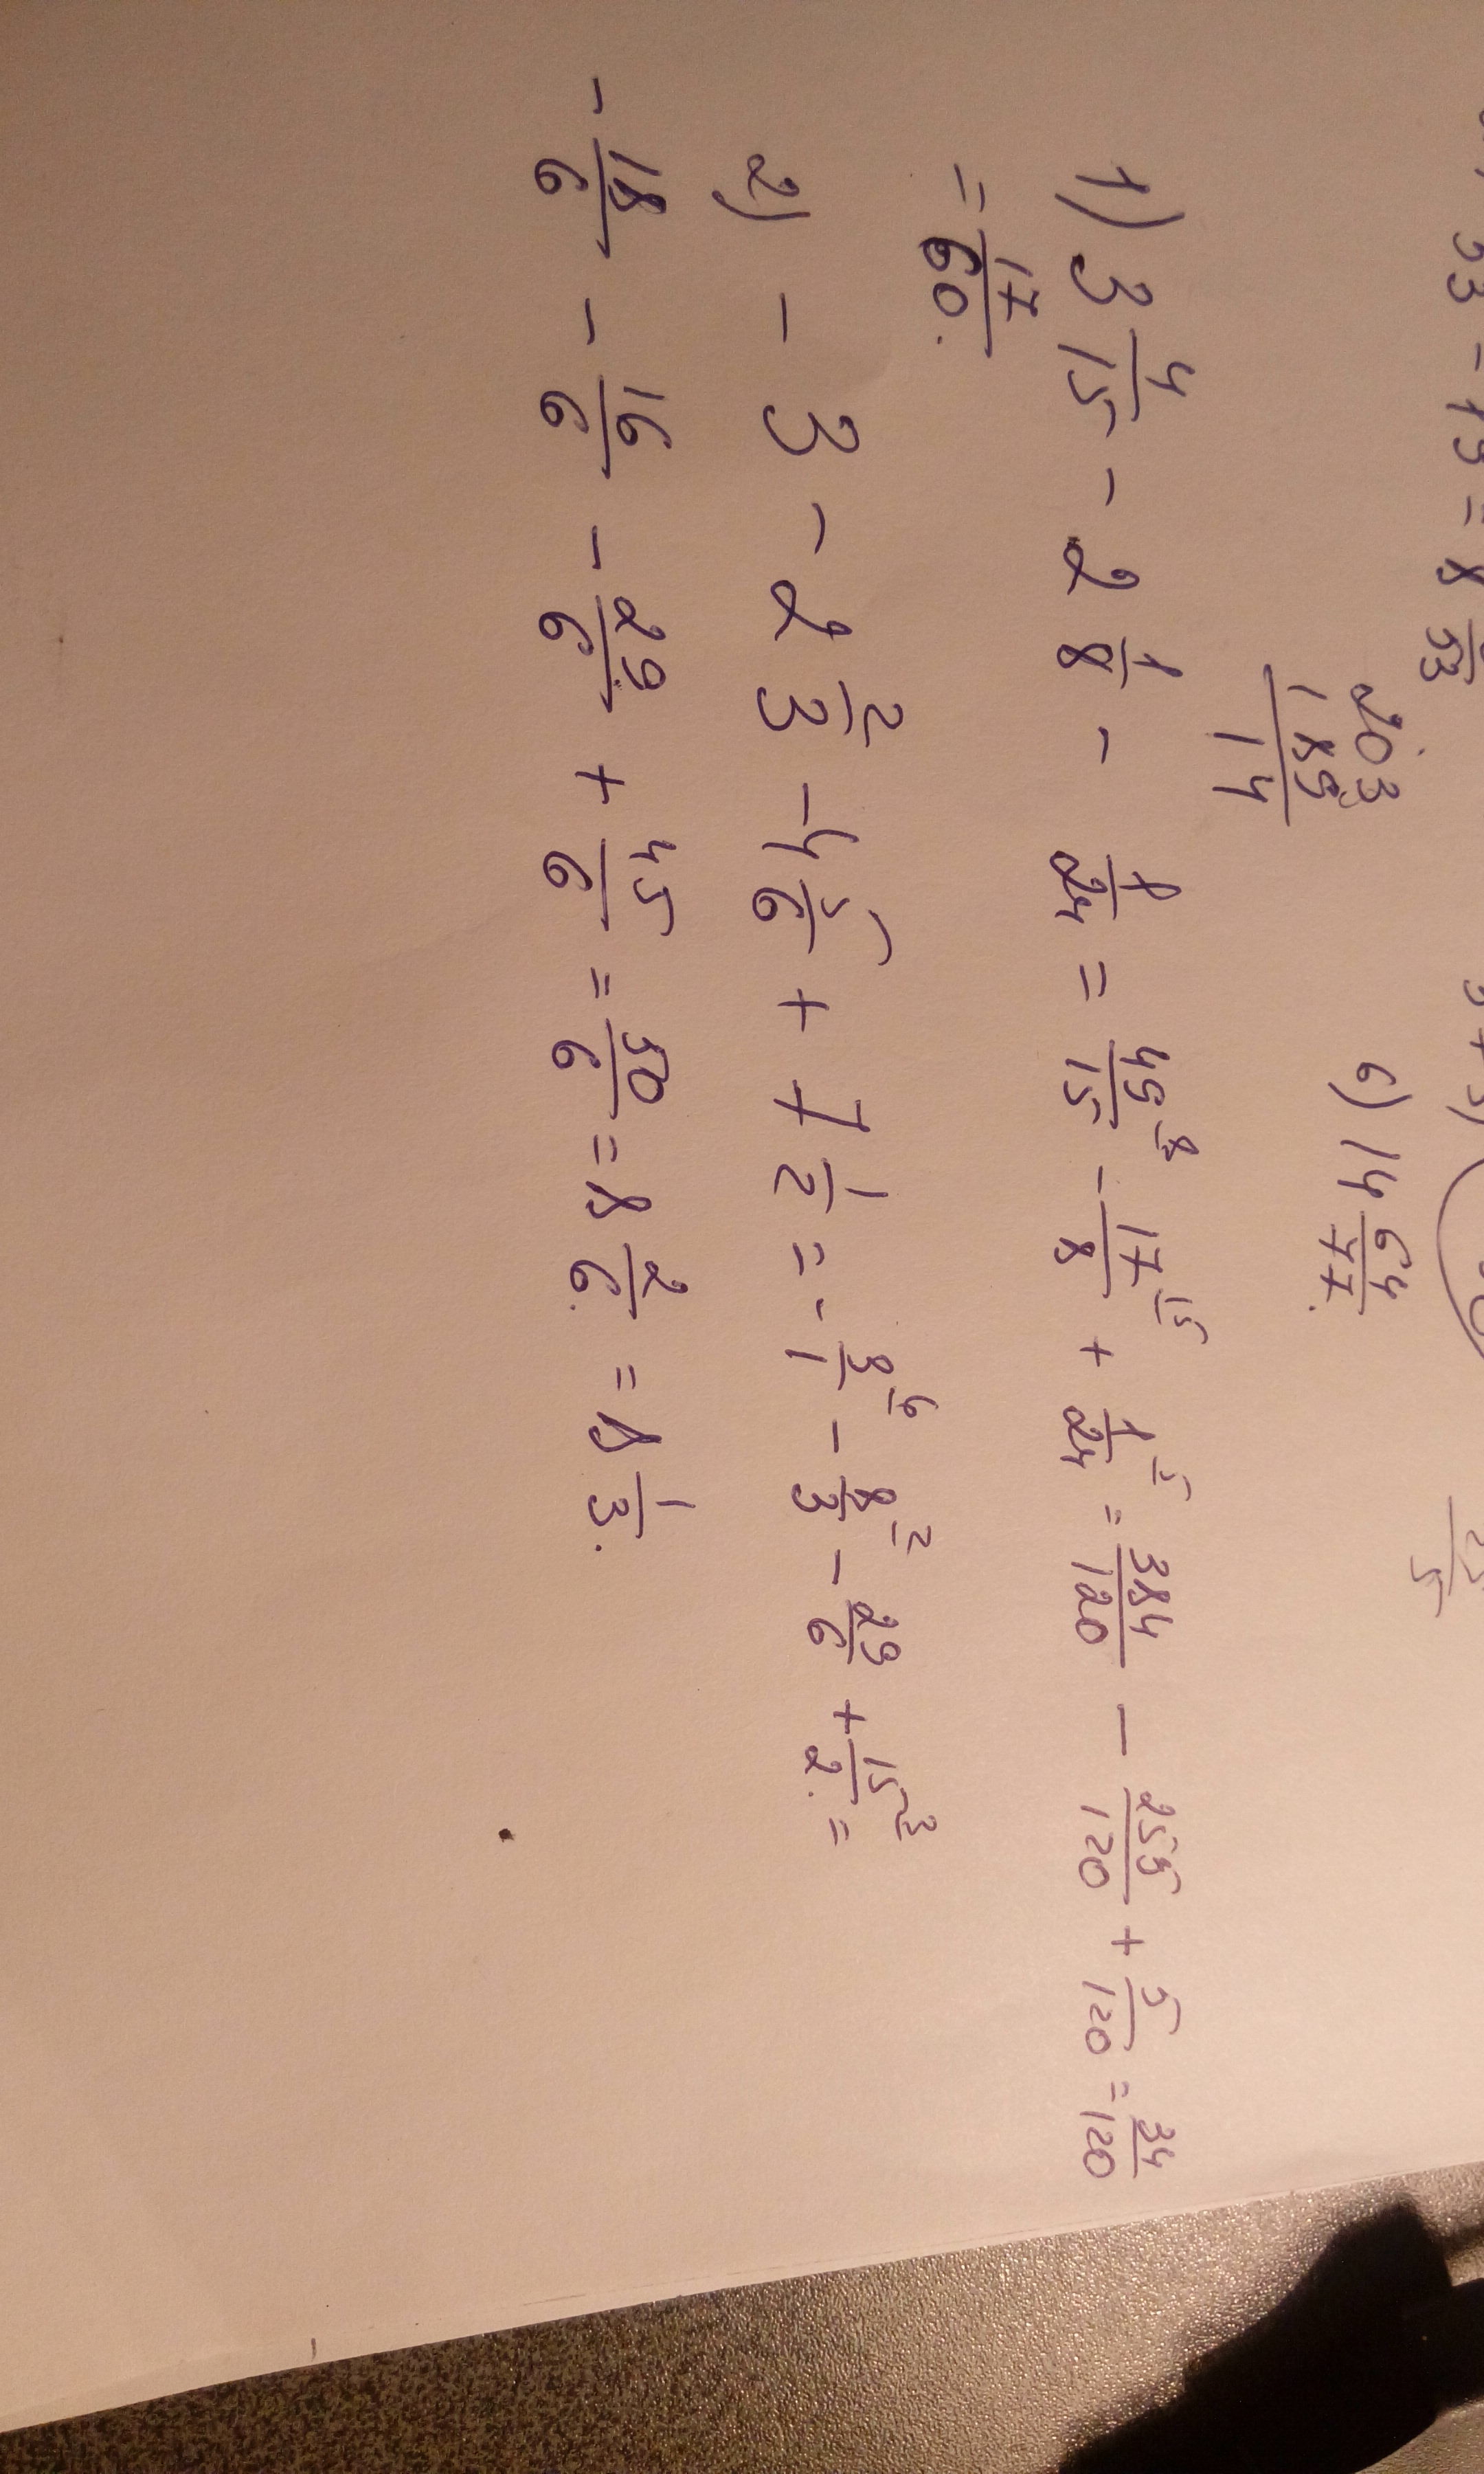 203
189
14
6) 14 64/77.
1) 3 4/15 - 2 1/8 - 1/24 = 49/15 ^8 - 17/8 ^15 + 1/24 ^5 = 384/120 - 255/120 + 5/120 = 34/120
= 17/60.
2) - 3 - 2 2/3 - 4 5/6 + 7 1/2 = - 3/1 ^6 - 8/3 ^2 - 29/6 + 15/2 ^3 =
- 18/6 - 16/6 - 29/6 + 45/6 = 50/6 = 8 2/6. = 8 1/3.